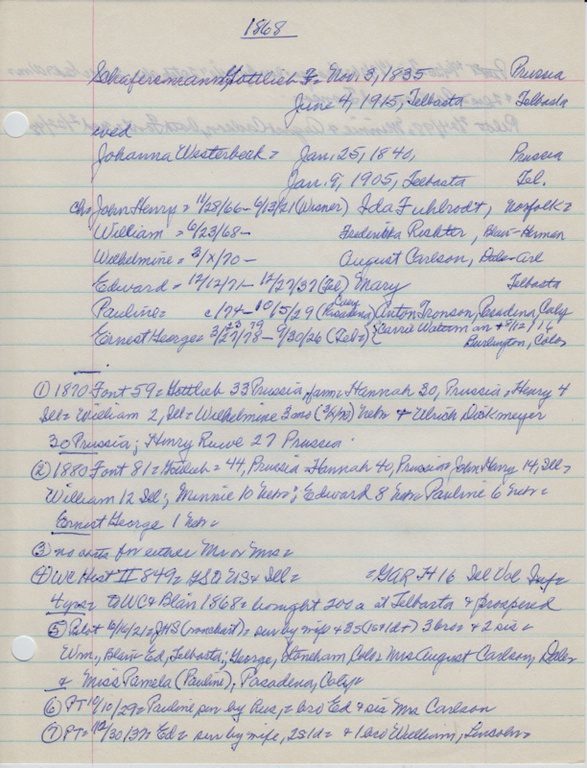 1868
Schafersmann, Gottlieb F = Nov. 3, 1835 Prussia
June 4, 1915, Telbasta Telbasta
wed
Johanna Westerbeck = Jan. 25, 1840, Prussia
Jan. 9, 1905, Telbasta Tel.
chn John Henry = 11/28/66 - 4/13/21 (Wisner) Ida Fuhlrodt, Norfolk =
William = 6/23/68 - Frederika Richter, Blair - Herman
Wilhelmine = 3/x/70 - August Carlson,
Edward = 12/12/71 - 12/27/37 (Tel) Mary Telbasta
Pauline = c/74 - 10/5/29 (Pasadena) Anton Tronson, Pasadena, Caly
Ernest George = 3/27/78 - 9/30/26 (Telb) Carrie Watson
Burlington, Colo
① 1870 Font 59 = Gottlieb 33 Prussia, farm = Hannah 30, Prussia, Henry 4
Ill = William 2, Ill = Wilhelmine 3 mos Nebr & Ulrich Dickmeyer
30 Prussia; Henry Ruwe 27 Prussia.
② 1880 Font 81 = Gottlieb = 44, Prussia = Hannah 40, Prussia, John Henry 14, Ill =
William 12 Ill; Minnie 10 Nebr; Edward 8 Nebr = Pauline 6 Nebr =
Ernest George 1 Nebr =
③ no obits for either Mr or Mrs =
④ WC Hist II 849 = G & Ill = = GAR H 16 Ill Vol Inf =
4 yrs = to WC & Blair 1868 = bought 200 a at Telbasta & prospered
⑤ Pilot = 4/16/21 = JHS = sur by wife & 3 bros & 2 sis =
Wm, Blair = Ed, Telbasta; George, Stoneham, Colo = Mrs August Carlson,
& Miss Pamela (Pauline), Pasadena, Caly =
⑥ PT 10/10/29 = Pauline sur by hus, = bro Ed & sis Mrs Carlson
⑦ PT = 12/30/37 = Ed = sur by wife, 2s 1d = & 1 bro William, Lincoln =